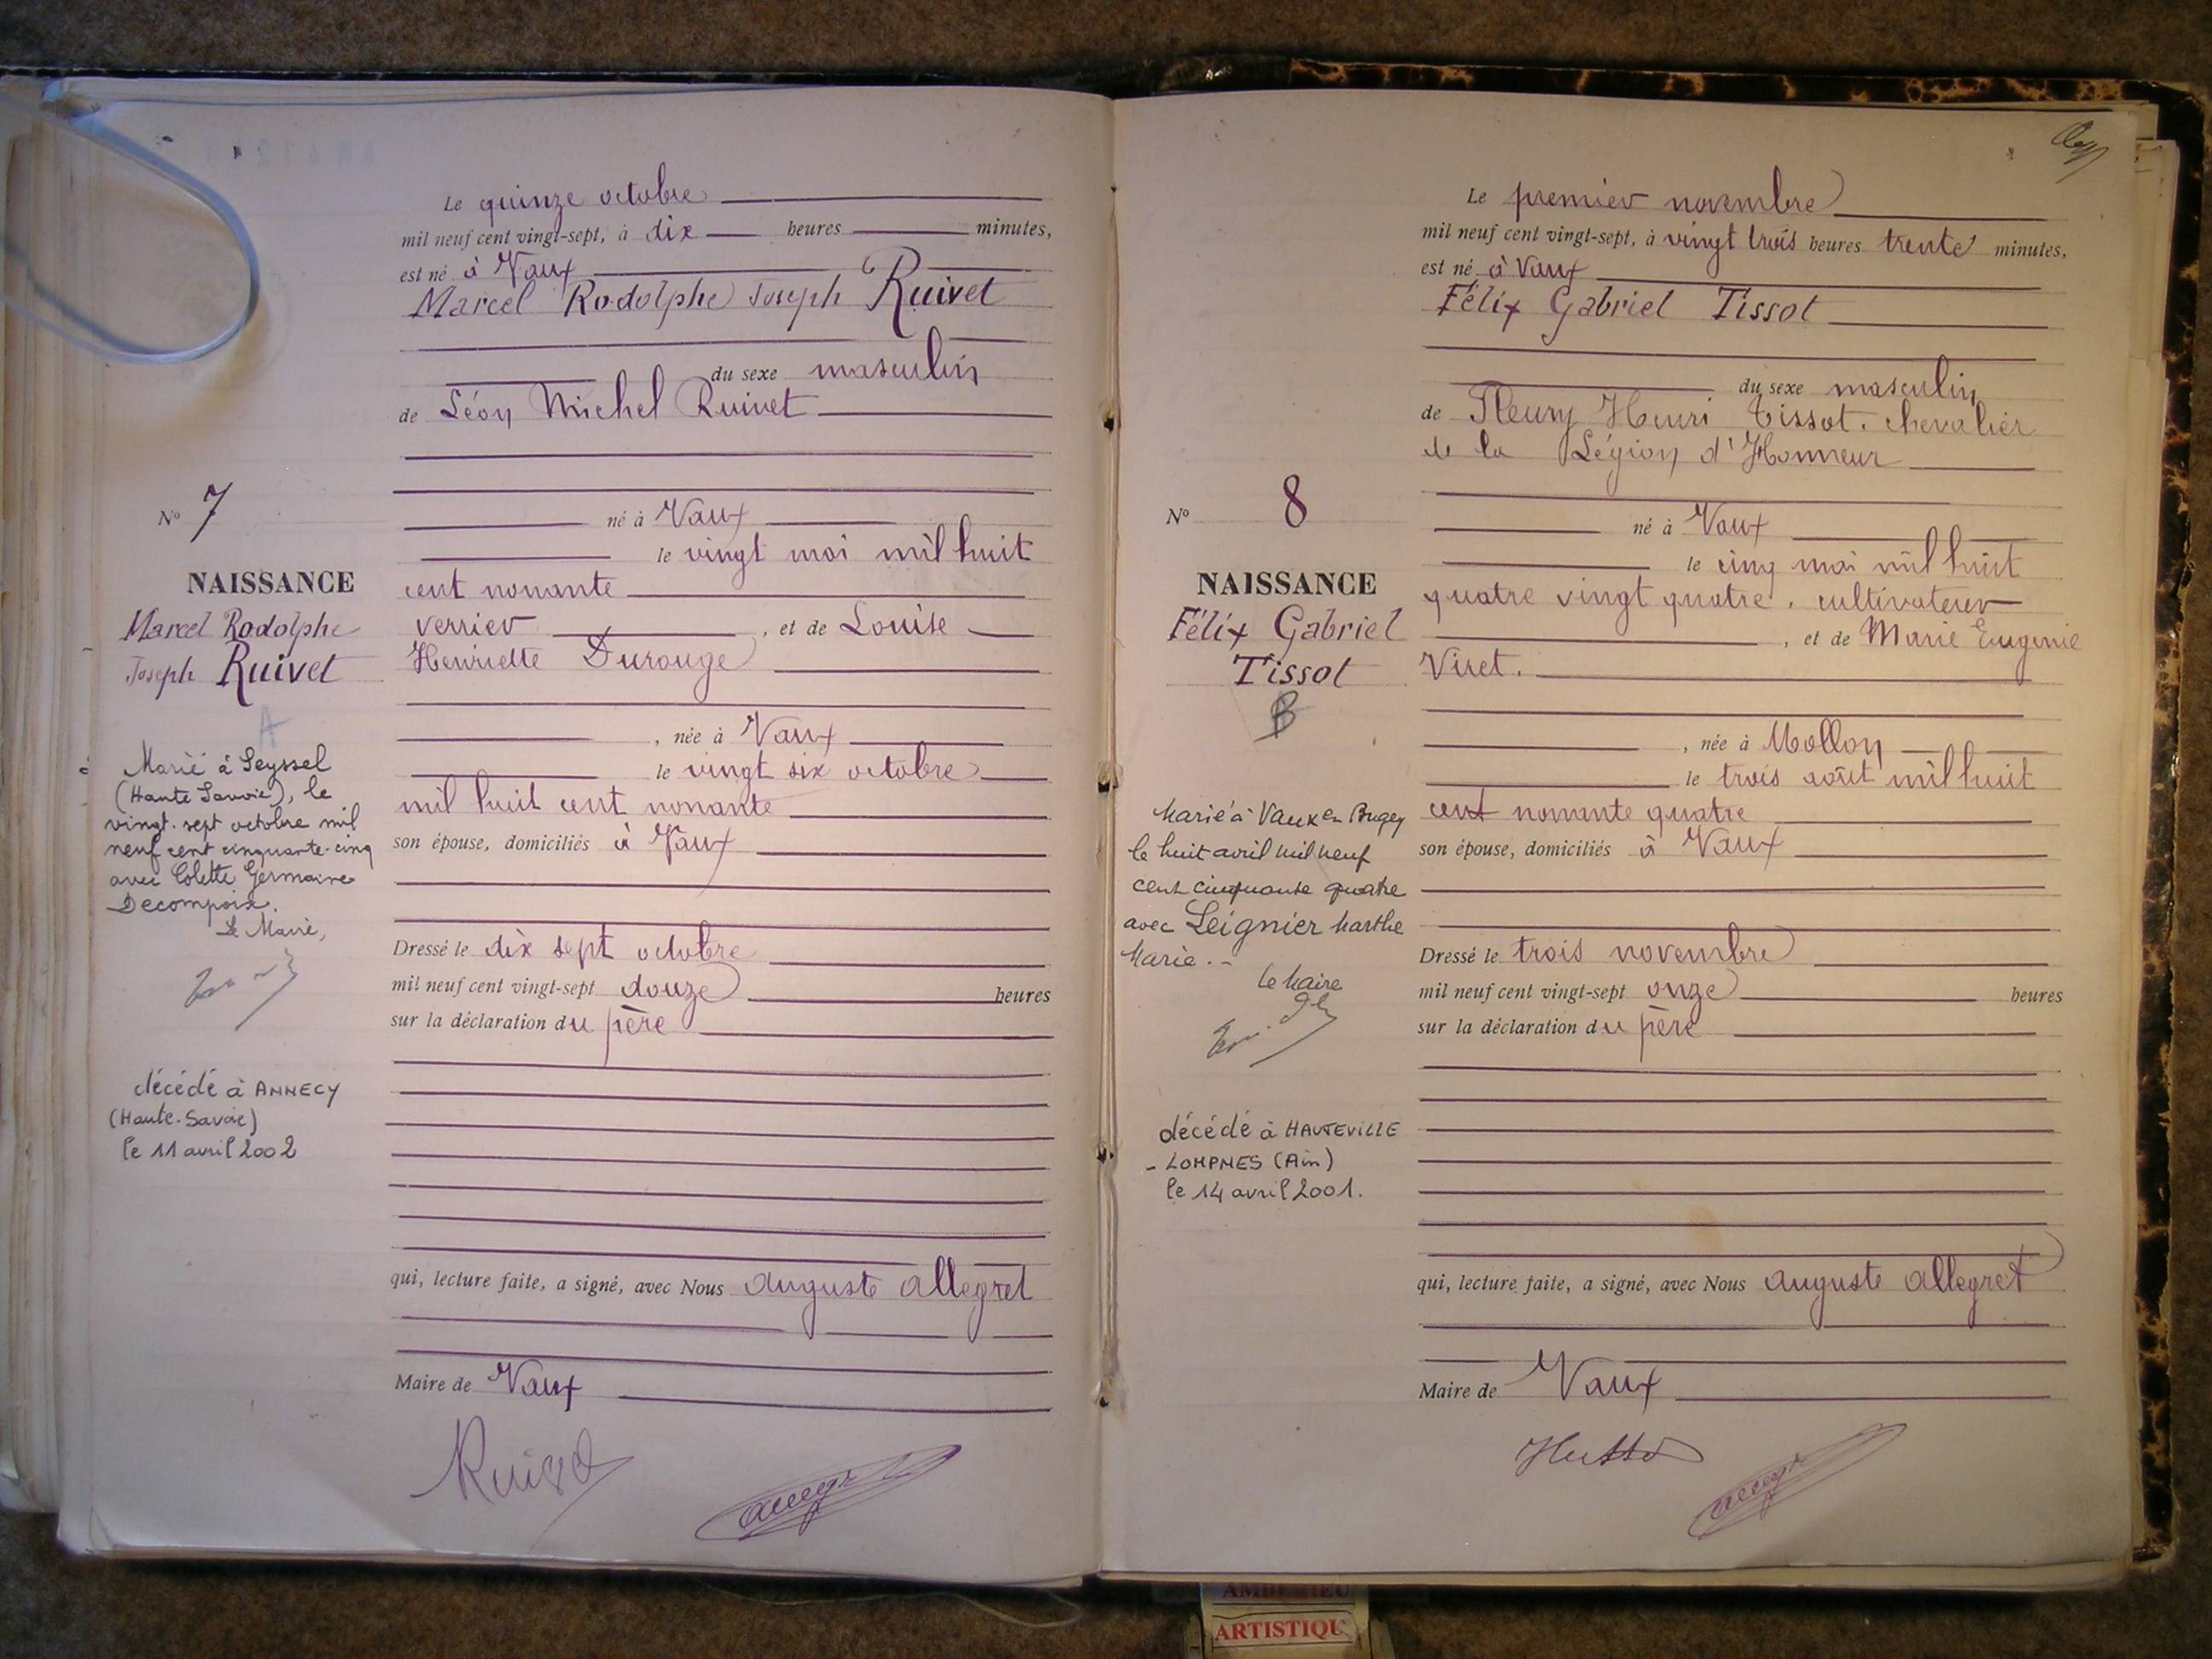 Le quinze octobre
mil neuf cent vingt-sept, à dix heures minutes,
est né à Vaux
Marcel Rodolphe Joseph Ruivet
du sexe masculin
de Léon Michel Ruivet
né à Vaux
le vingt mai mil huit
cent nonante
verrier , et de Louise
Henriette Durouge
, née à Vaux
le vingt six octobre
mil huit cent nonante
son épouse, domiciliés à Vaux
Dressé le dix sept octobre
mil neuf cent vingt-sept douze heures
sur la déclaration du père
qui, lecture faite, a signé, avec Nous Auguste Allegret
Maire de Vaux
Nº 7
NAISSANCE
Marcel Rodolphe
Joseph Ruivet
A
Marié à Seyssel
(Haute Savoie), le
vingt-sept octobre mil
neuf cent cinquante-cinq
avec Colette Germaine
Decompoix.
Le Maire,
décédé à ANNECY
(Haute-Savoie)
le 11 avril 2002
Le premier novembre
mil neuf cent vingt-sept, à vingt trois heures trente minutes,
est né à Vaux
Félix Gabriel Tissot
du sexe masculin
de Fleury Henri Tissot. chevalier
de la Légion d'Honneur
né à Vaux
le cinq mai mil huit
quatre vingt quatre, cultivateur
, et de Marie Eugenie
Viret.
, née à Mollon
le trois août mil huit
cent nonante quatre
son épouse, domiciliés à Vaux
Dressé le trois novembre
mil neuf cent vingt-sept onze heures
sur la déclaration du père
qui, lecture faite, a signé, avec Nous Auguste Allegret
Maire de Vaux
Nº 8
NAISSANCE
Félix Gabriel
Tissot
B
Marié à Vaux en Bugey
le huit avril mil neuf
cent cinquante quatre
avec Leignier Marthe
Marie.-
Le Maire
décédé à HAUTEVILLE
- LOMPNES (Ain)
le 14 avril 2001.
ARTISTIQU